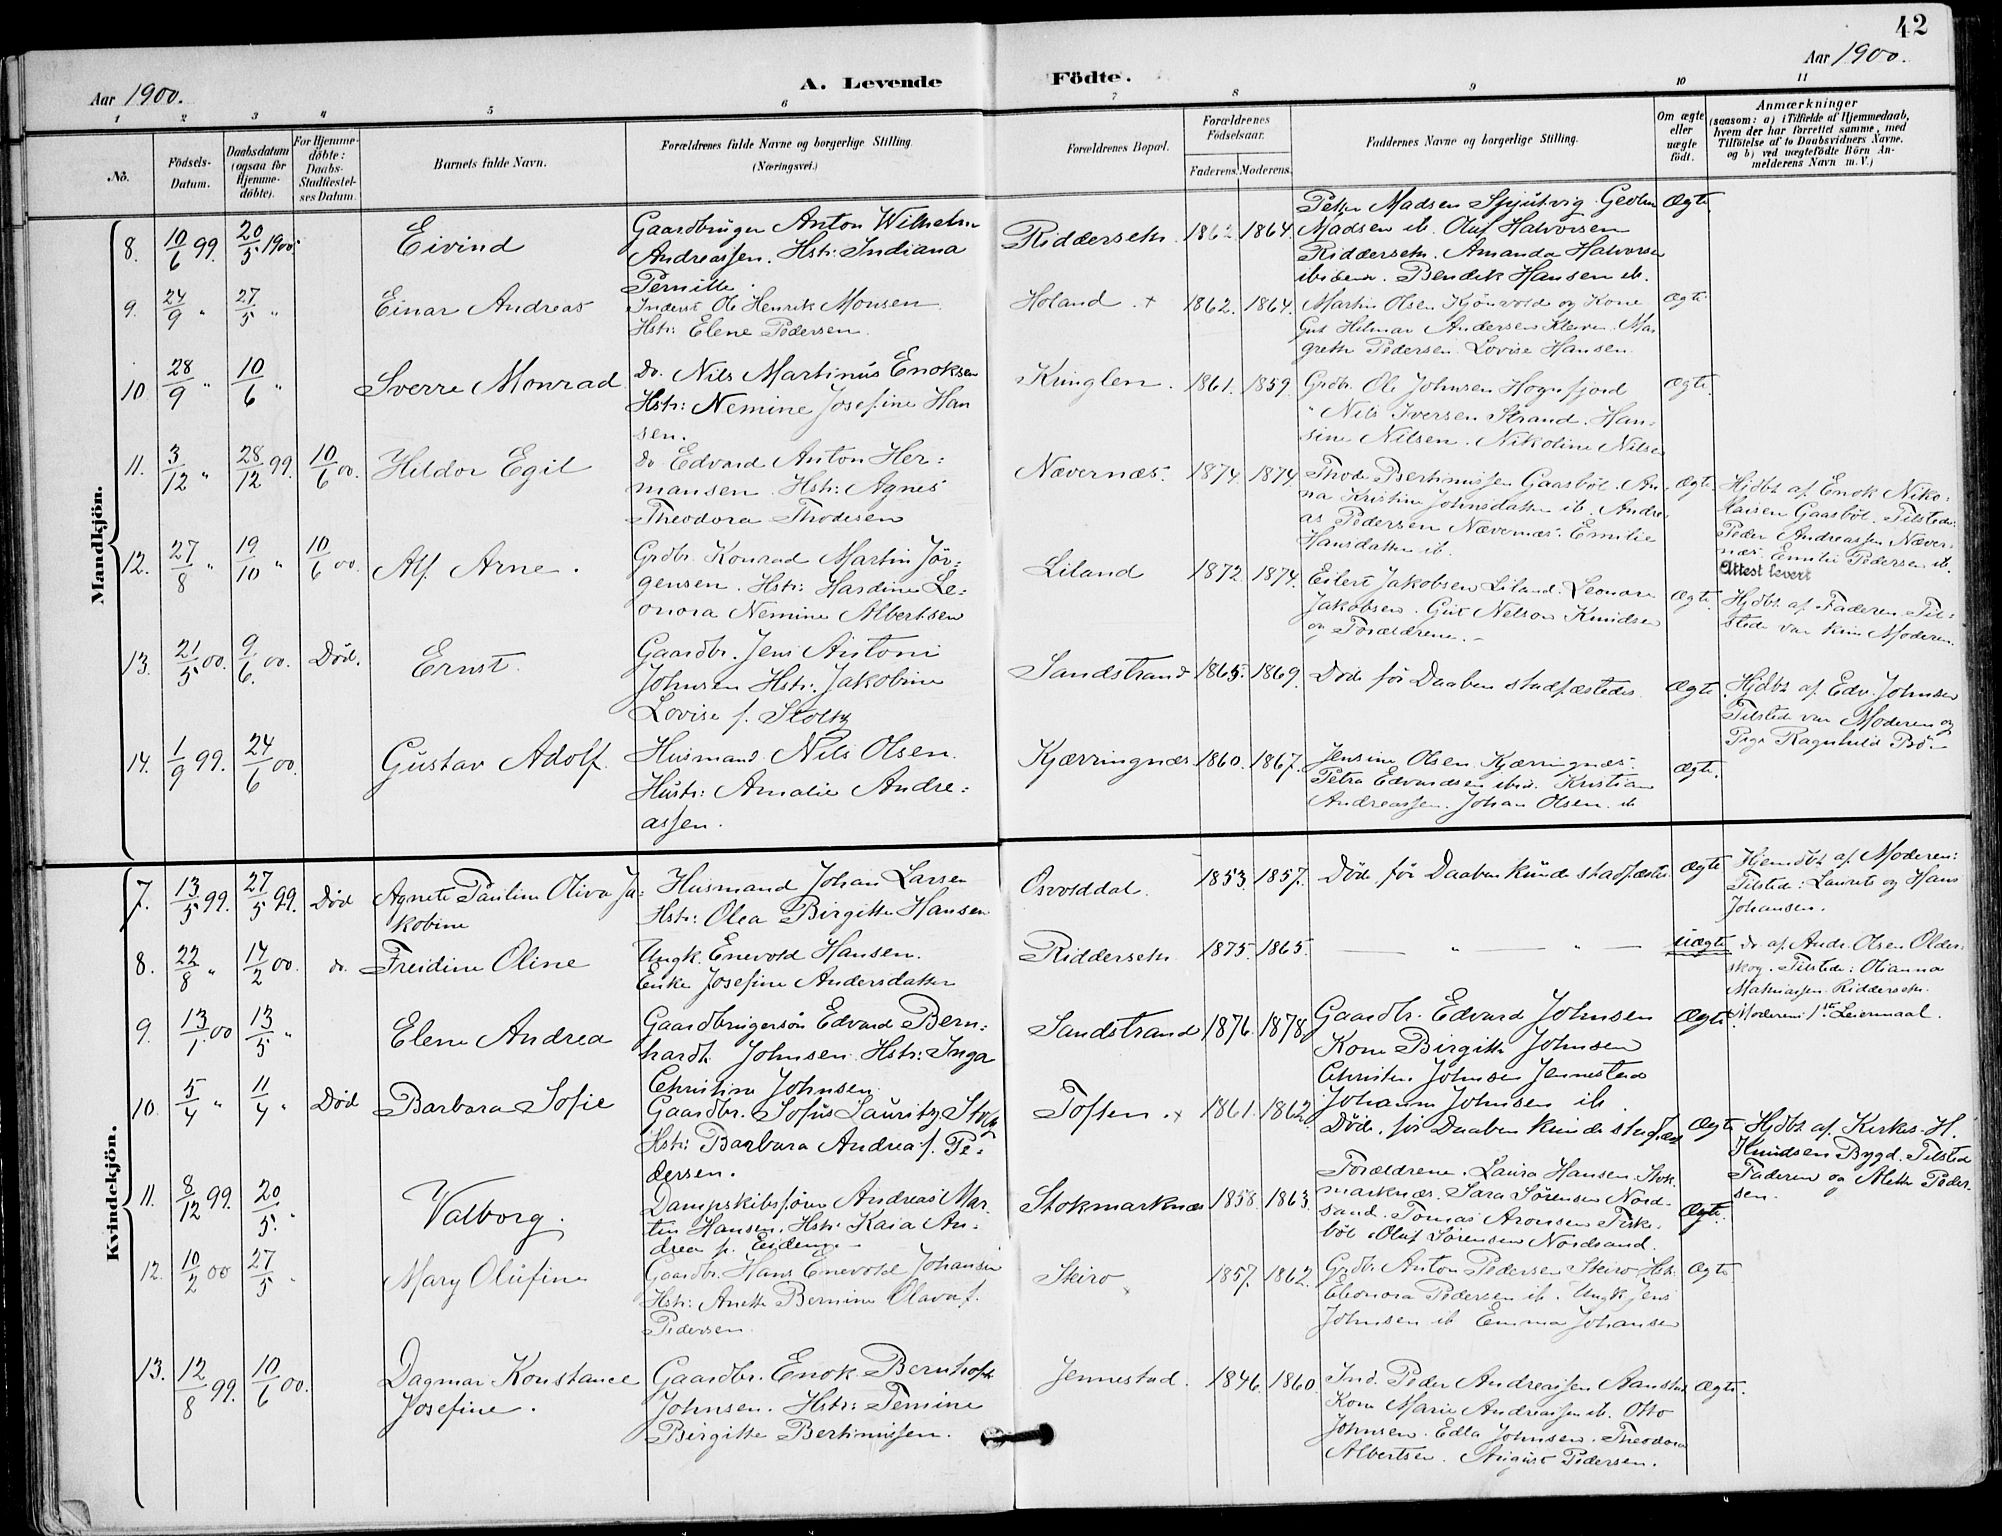 42
Aar 1900.
A. Levende
Födte.
Aar 1900.
1 2 3 4 5 6 7 8 9 10 11
No.
Födsels-
Datum.
Daabsdatum
(ogsaa for
Hjemme-
döbte).
For Hjemme-
döbte:
Daabs-
Stadfæstel-
ses Datum.
Barnets fulde Navn.
Forældrenes fulde Navne og borgerlige Stilling
(Næringsvei.)
Forældrenes Bopæl.
Forældrenes
Födselsaar.
Faderens. Moderens.
Faddernes Navne og borgerlige Stilling.
Om ægte
eller
uægte
födt.
Anmærkninger
(saasom: a) i Tilfælde af Hjemmedaab,
hvem der har forrettet samme, med
Tilföielse af to Daabsvidners Navne.
og b) ved uægtefödte Börn An-
melderens Navn m. V.)
Mandkjön.
8. 10/6 99. 20/5 1900. Eivind
Gaardbruger Anton Wilhelm
Andreassen. Hstr: Indiana
Pernille.
Riddersehn. 1862. 1864.
Petter Madsen Gedm
Madsen ib. Oluf Halvorsen
Ridderseth. Amanda Halvorse
ibidem. Bendik Hansen ib.
Ægte
9. 24/9 " 27/5 " Einar Andreas
Inderst Ole Henrik Monsen
Hstr: Elene Pedersen.
Holand + 1862. 1864.
Martin Olsen Kjönvold og Kone
Gut Hilmar Andersen Kleiven. Mar
grethe Pedersen. Lovise Hansen.
Ægte
10 28/9 " 10/6 " Sverre Monrad
Do. Nils Martinus Enoksen
Hstr: Nemine Josefine Han
sen.
Kringlen. 1861. 1859.
Grdb. Ole Johnsen Hognfjord
" Nils Iversen Strand. Han-
sine Nilsen. Nikoline Nilsen
Ægte.
11. 3/12 " 28/12 99. 10/6 00. Heldor Egil
do Edvard Anton Her:
mansen. Hstr: Agnes
Theodora Thodesen
Nævernæs. 1874. 1874.
Thode Bertinussen Gaasböl. An
na Kristine Johnsdatter ib. Andre
as Pedersen Nævernæs. Emilie
Hansdatter ib.
Ægte.
Hjdbt af Enok Niko:
laisen Gaasböl. Tilstede:
Peder Andreassen Næver
næs. Emilie Pedersen ib.
Attest levert
12. 27/8 " 19/10 " 10/6 00. Alf Arne.
Grdbr. Konrad Martin Jör-
gensen. Hstr: Hardine Le:
onora Nemine Albertsen
Liland 1872. 1874.
Eilert Jakobsen Liland. Leonore
Jakobsen. Gut Nelson Knudsen
og Forældrene.
Ægte.
Hjdbt af Faderen. Til-
stede var kun Moderen.
13. 21/5 00. 9/6. 00. Död. Ernst.
Gaardbr. Jens Antoni
Johnsen Hstr: Jakobine
Lovise f. Stoltz
Sandstrand 1865. 1869.
Döde för Daaben stadfæstedes.
Ægte.
Hjdbt af Edv. Johnsen
Tilstede var Moderen og
Pige Ragnhild
14. 1/9 99. 24/6 00. Gustav Adolf.
Husmand Nils Olsen.
Hustr: Amalie Andre:
assen.
Kjærringnæs 1860. 1867.
Jensine Olsen Kjærringnæs.
Petra Edvardsen ibid. Kristian
Andreassen. Johan Olsen. ib
Ægte.
Kvindekjön.
7. 13/5 99. 27/5 99. Död Agnete Pauline Oliva Ja:
kobine
Husmand Johan Larsen
Hstr: Olea Birgitte Hansen
Osvolddal. 1853. 1857.
Döde för Daaben kunde stadfæstes
Ægte
Hjemdbt af Moderen:
Tilstede: Laurits og Hans
Johansen.
8. 22/8 " 14/2 00. do. Freidine Oline
Ungk. Enevold Hansen.
Enke Josefine Andersdatter
Ridderseth. 1875. 1865.
— " — " —
uægte
do af Andr. Olsen Older:
skog. Tilstede: Olianna
Mathiassen Ridderseth.
Moderens 1ste Leiermaal.
9. 13/1. 00 13/5 " Elene Andrea
Gaardbrugersön Edvard Bern:
hardt Johnsen. Hstr: Inga
Christina Johnsen.
Sandstrand 1876. 1878.
Gaardbr. Edvard Johnsen
Kone Birgitte Johnsen
Christen Johnsen Jennestad
Johanna Johnsen ib.
Ægte.
10. 5/4 " 11/4 " Död Barbara Sofie
Gaardbr. Sofus Lauritz
Hstr: Barbara Andrea f. Pe-
dersen.
Toften. x 1861. 1862.
Döde. för Daaben kunde
Ægte
Hjdbt af Kirkes. H.
Knudsen Bygd. Tilsted
Faderen og Alette Peder-
sen.
11. 8/12 99. 20/5. " Valborg.
Dampskibsförer Andreas Mar
tin Hansen. Hstr: Kaia An-
drea f.
Stokmarknæs 1858. 1863.
Forældrene. Laura Hansen. Stok
marknæs. Sara Sörensen Nord-
sand. Tomas Aronsen Fisk-
böl. Oluf Sörensen Nordsand.
Ægte.
12. 10/2 00 27/5 " Mary Olufine
Gaardbr. Hans Enevold Johansen
Hstr: Anette Bernine Olava f.
Pedersen.
Skiro 1857. 1862.
Grdbr Anton Pedersen Skiro Hstr
Eleonora Pedersen ib. Ungk Jens
Johnsen ib Emma Johansen
Ægte
13. 12/8 99. 10/6 00. Dagmar Konstance
Josefine.
Gaardbr. Enok Bernhoft
Johnsen. Hstr: Femine
Birgitte Bertinussen.
Jennestad. 1846. 1860.
Ind. Peder Andreassen Aanstad
Kone Marie Andreassen ib. Otto
Johnsen. Edla Johnsen. Theodora
Albertsen. August Pedersen.
Ægte.